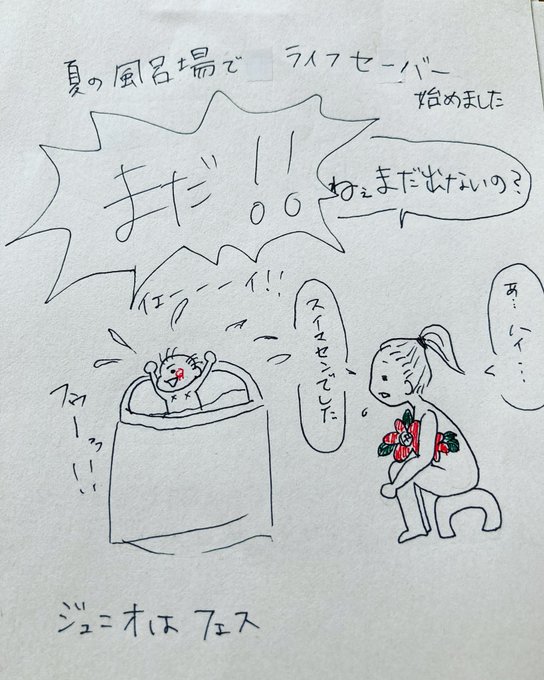 夏の風呂場で ライフセーバー
始めました
まだ!!
ねぇまだ出ないの?
イェーーーイ!!
スイマセンでした
あ…ハイ…
フゥーっ!!
ジュニオは フェス